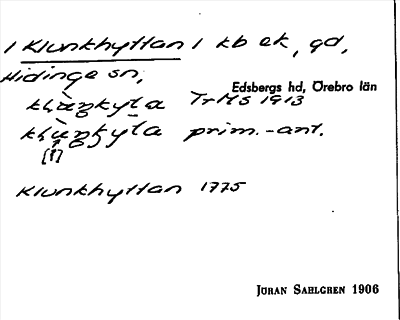 1 Klunkhyttan 1 kb ek, gd,
Hidinge sn,
Edsbergs hd, Örebro län
TrHS 1913
prim.-ant.
Klunkhyttan 1775
JÖRAN SAHLGREN 1906